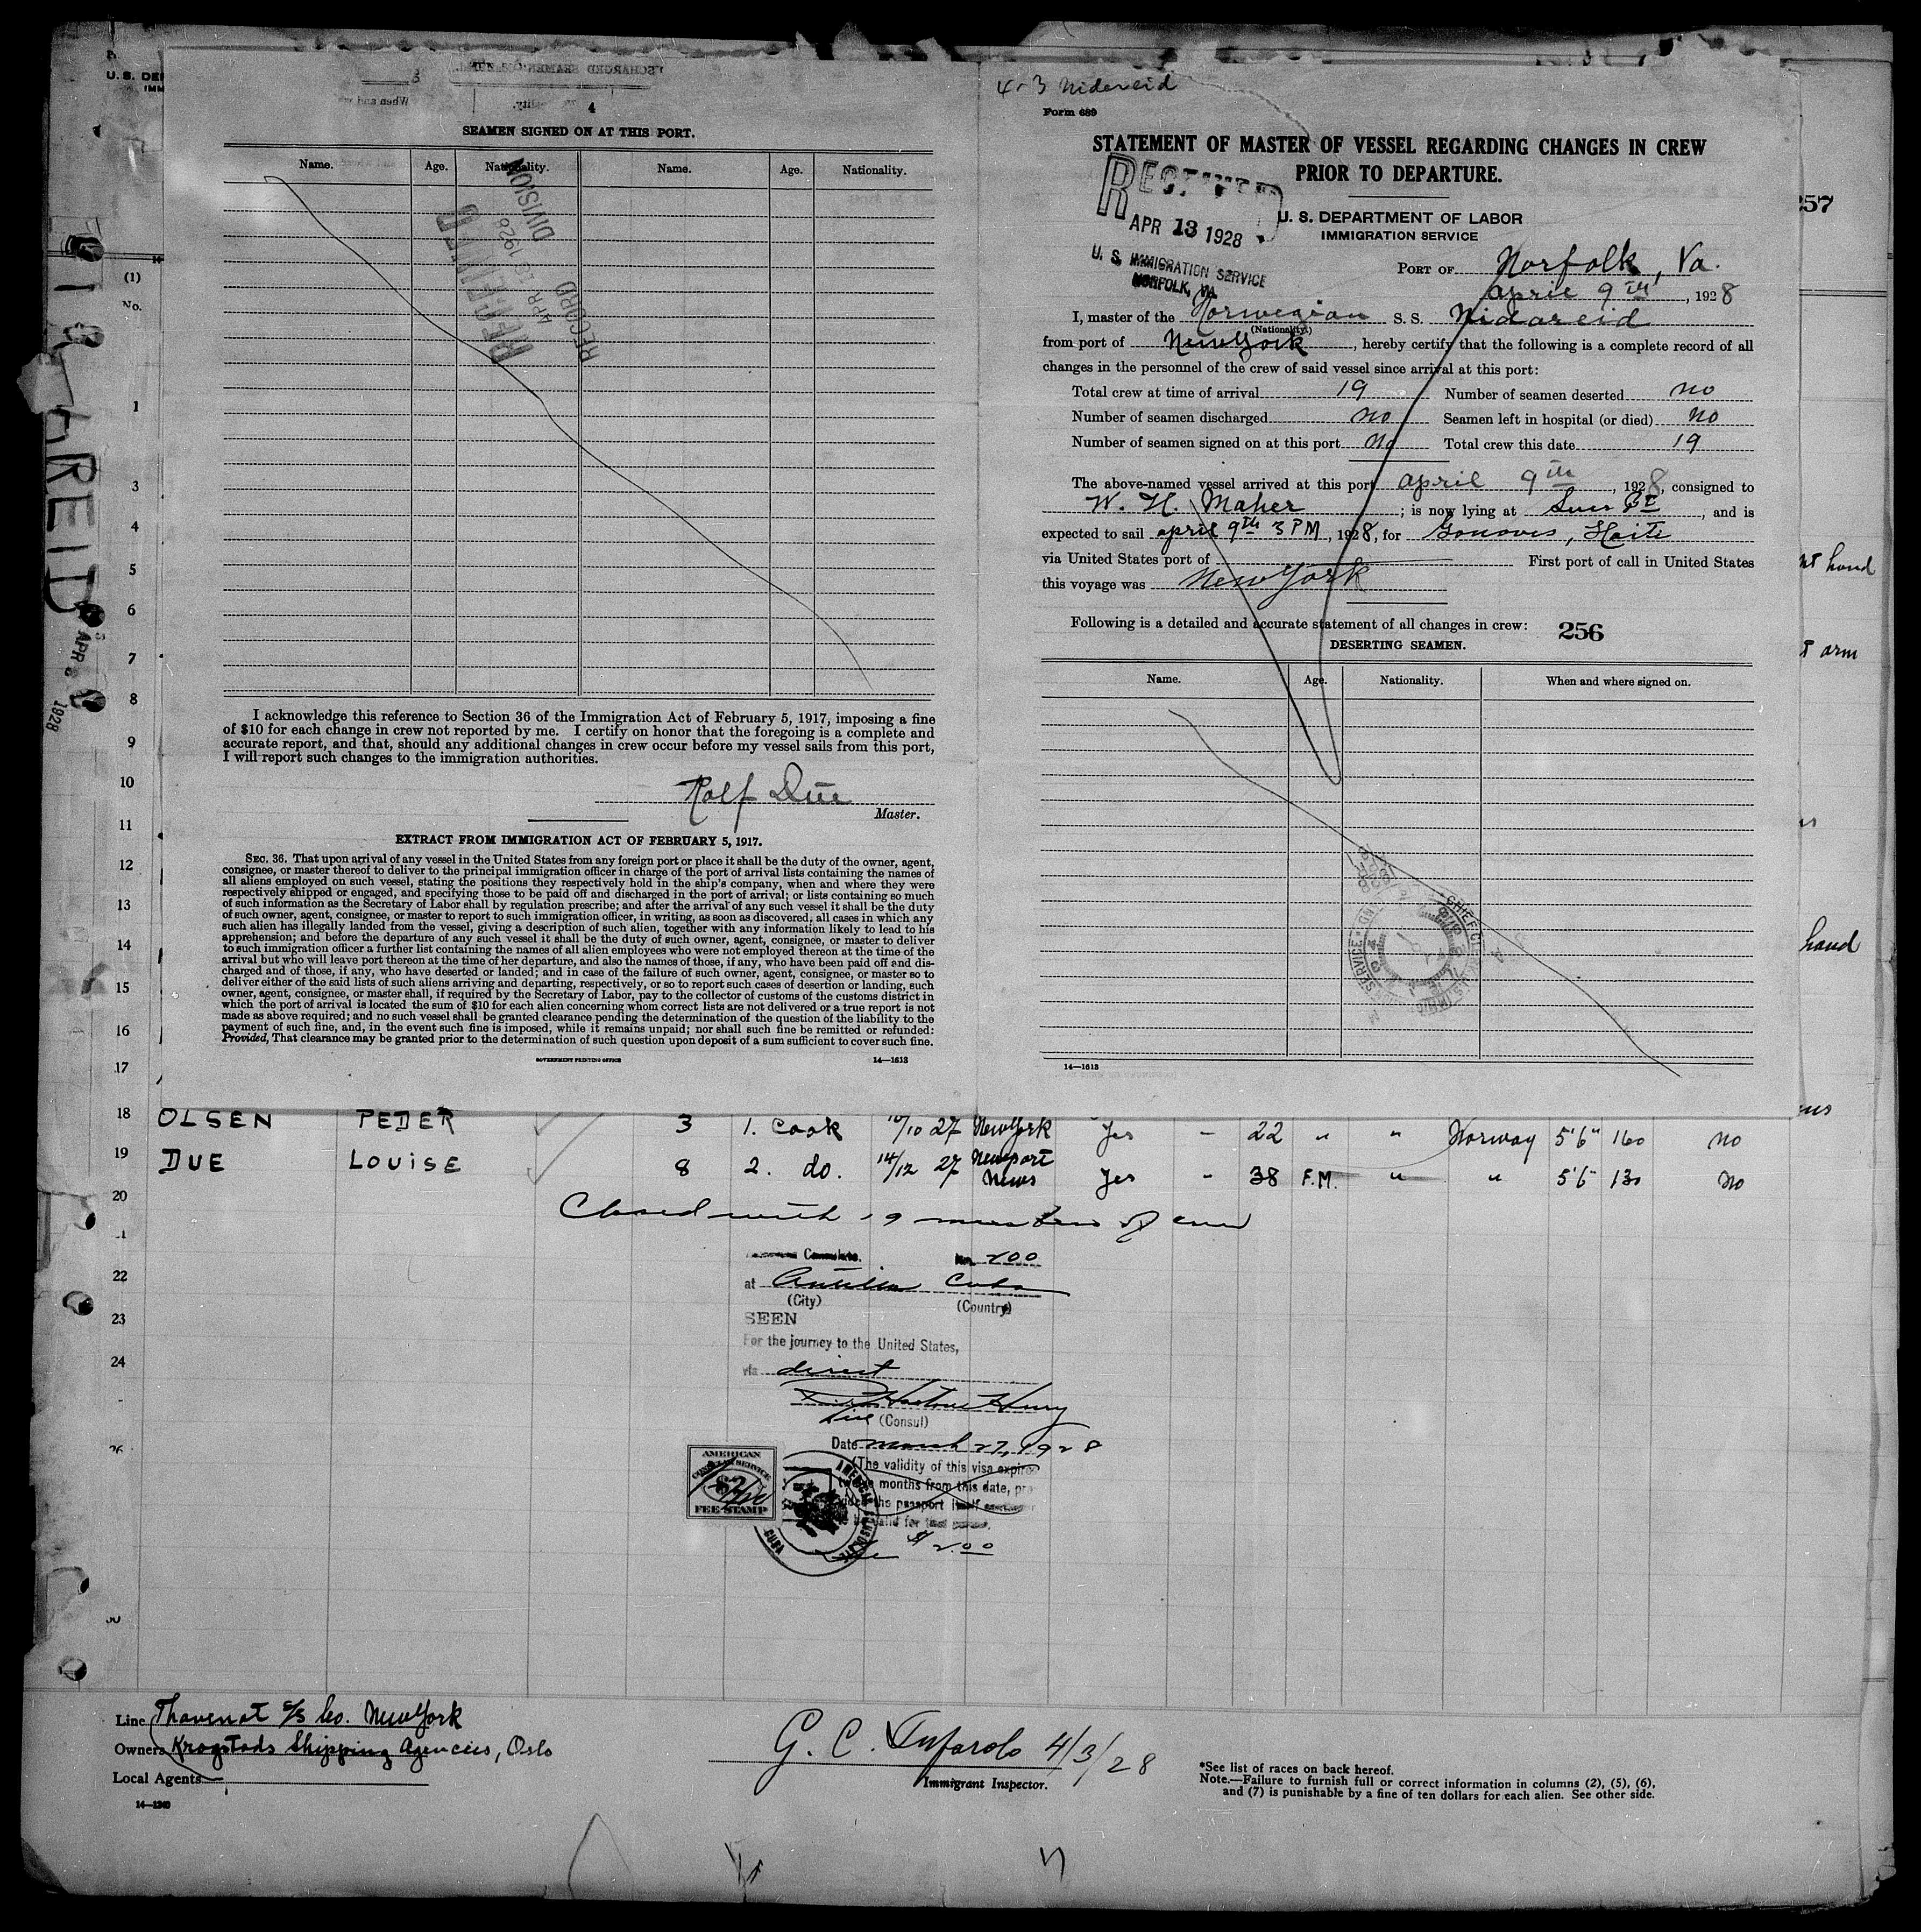 4
SEAMEN SIGNED ON AT THIS PORT.
Name. Age. Nationality. Name. Age. Nationality.
RECEIVED
APR 13 1928
RECORD DIVISION
I acknowledge this reference to Section 36 of the Immigration Act of February 5, 1917, imposing a fine
of $10 for each change in crew not reported by me. I certify on honor that the foregoing is a complete and
accurate report, and that, should any additional changes in crew occur before my vessel sails from this port,
I will report such changes to the immigration authorities.
Rolf Due
Master.
EXTRACT FROM IMMIGRATION ACT OF FEBRUARY 5, 1917.
SEC. 36. That upon arrival of any vessel in the United States from any foreign port or place it shall be the duty of the owner, agent,
consignee, or master thereof to deliver to the principal immigration officer in charge of the port of arrival lists containing the names of
all aliens employed on such vessel, stating the positions they respectively hold in the ship's company, when and where they were
respectively shipped or engaged, and specifying those to be paid off and discharged in the port of arrival; or lists containing so much
of such information as the Secretary of Labor shall by regulation prescribe; and after the arrival of any such vessel it shall be the duty
of such owner, agent, consignee, or master to report to such immigration officer, in writing, as soon as discovered, all cases in which any
such alien has illegally landed from the vessel, giving a description of such alien, together with any information likely to lead to his
apprehension; and before the departure of any such vessel it shall be the duty of such owner, agent, consignee, or master to deliver
to such immigration officer a further list containing the names of all alien employees who were not employed thereon at the time of the
arrival but who will leave port thereon at the time of her departure, and also the names of those, if any, who have been paid off and dis-
charged and of those, if any, who have deserted or landed; and in case of the failure of such owner, agent, consignee, or master so to
deliver either of the said lists of such aliens arriving and departing, respectively, or so to report such cases of desertion or landing, such
owner, agent, consignee, or master shall, if required by the Secretary of Labor, pay to the collector of customs of the customs district in
which the port of arrival is located the sum of $10 for each alien concerning whom correct lists are not delivered or a true report is not
made as above required; and no such vessel shall be granted clearance pending the determination of the question of the liability to the
payment of such fine, and, in the event such fine is imposed, while it remains unpaid; nor shall such fine be remitted or refunded:
Provided, That clearance may be granted prior to the determination of such question upon deposit of a sum sufficient to cover such fine.
GOVERNMENT PRINTING OFFICE 14—1613
4-3 Nidareid
Form 689
STATEMENT OF MASTER OF VESSEL REGARDING CHANGES IN CREW
PRIOR TO DEPARTURE.
RECEIVED
APR 13 1928
U. S. IMMIGRATION SERVICE
NORFOLK, VA.
U. S. DEPARTMENT OF LABOR
IMMIGRATION SERVICE
PORT OF Norfolk, Va.
April 9th, 1928
I, master of the Norwegian S. S. Nidareid
(Nationality)
from port of New York, hereby certify that the following is a complete record of all
changes in the personnel of the crew of said vessel since arrival at this port:
Total crew at time of arrival 19 Number of seamen deserted no
Number of seamen discharged no Seamen left in hospital (or died) no
Number of seamen signed on at this port no Total crew this date 19
The above-named vessel arrived at this port april 9th, 1928, consigned to
W. H. Maher; is now lying at , and is
expected to sail april 9th 3 PM, 1928, for Gonoves, Haiti
via United States port of First port of call in United States
this voyage was New York
Following is a detailed and accurate statement of all changes in crew: 256
DESERTING SEAMEN.
Name. Age. Nationality. When and where signed on.
14—1613
257
hand
arm
hand
REID
APR 3 1928
(1)
No.
1
3
4
5
6
7
8
9
10
11
12
13
14
15
16
17
18 OLSEN PEDER 3 1. Cook 10/10 27 New York Yes - 22 " " Norway 5'6" 160 no
19 DUE LOUISE 8 2. do. 14/12 27 Newport News Yes - 38 F.M. " " 5'6" 130 no
20
Closed with 19 members of crew
22
23
24
Consulate. No. 200
at Antilla Cuba
(City) (Country)
SEEN
For the journey to the United States,
via direct
(Consul)
Date March 27, 1928
(The validity of this visa expires
months from this date, pro-
the passport itself
valid for that period.
$2.00
AMERICAN
CONSULAR SERVICE
FEE STAMP
AMERICAN CONSULATE
CUBA
Line Thavenot S/S Co. New York
Owners Krogstads Shipping Agencies, Oslo
Local Agents
14—1240
G. C. Tufarolo 4/3/28
Immigrant Inspector.
*See list of races on back hereof.
Note.—Failure to furnish full or correct information in columns (2), (5), (6),
and (7) is punishable by a fine of ten dollars for each alien. See other side.